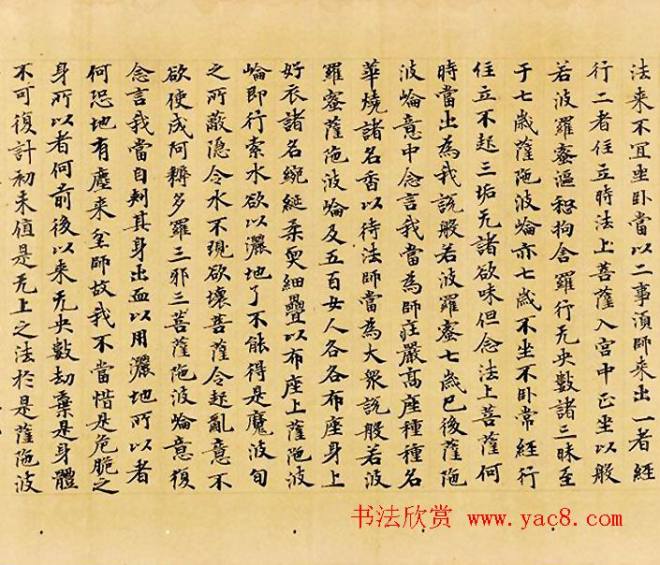 法来不宜坐卧當以二事湏師来出一者經
行二者住立時法上菩薩入宫中正坐以般
若波羅蜜漚惒狗舍羅行无央數諸三昧至
于七歲薩陁波崘亦七歲不坐不卧常經行
住立不起三垢无諸欲味但念法上菩薩何
時當出為我說般若波羅蜜七歲已後薩陁
波崘意中念言我當為師庄嚴高座種種名
華燒諸名香以待法師當為大衆說般若波
羅蜜薩陁波崘及五百女人各各布座身上
好衣諸名綩綖柔耎細疊以布座上薩陁波
崘即行索水欲以灑地了不能得是魔波旬
之所蔽隱令水不現欲壞菩薩令起亂意不
欲使成阿耨多羅三耶三菩薩陁波崘意復
念言我當自刺其身出血以用灑地所以者
何恐地有塵来坌師故我不當惜是危脆之
身所以者何前後以来无央數劫棄是身體
不可復計初未值是无上之法於是薩陁波
书法欣赏 www.yac8.com